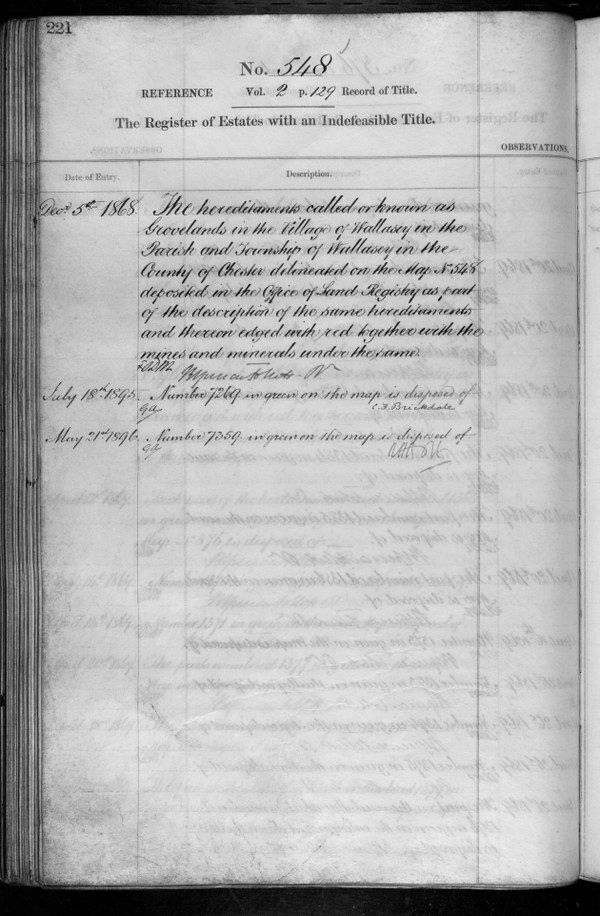 221
No. 548
REFERENCE Vol. 2 p. 129 Record of Title.
The Register of Estates with an Indefeasible Title.
OBSERVATIONS.
Date of Entry. Description.
Decr. 5th 1868. The hereditaments called or known as
Grovelands in the Village of Wallasey in the
Parish and Township of Wallasey in the
County of Chester delineated on the Map No. 548
deposited in the Office of Land Registry as part
of the description of the same hereditaments
and thereon edged with red together with the
mines and minerals under the same.
July 18th 1895. Number 7269 in green on the map is disposed of
C. F. Brickdale
May 21st 1896. Number 7359 in green on the map is disposed of